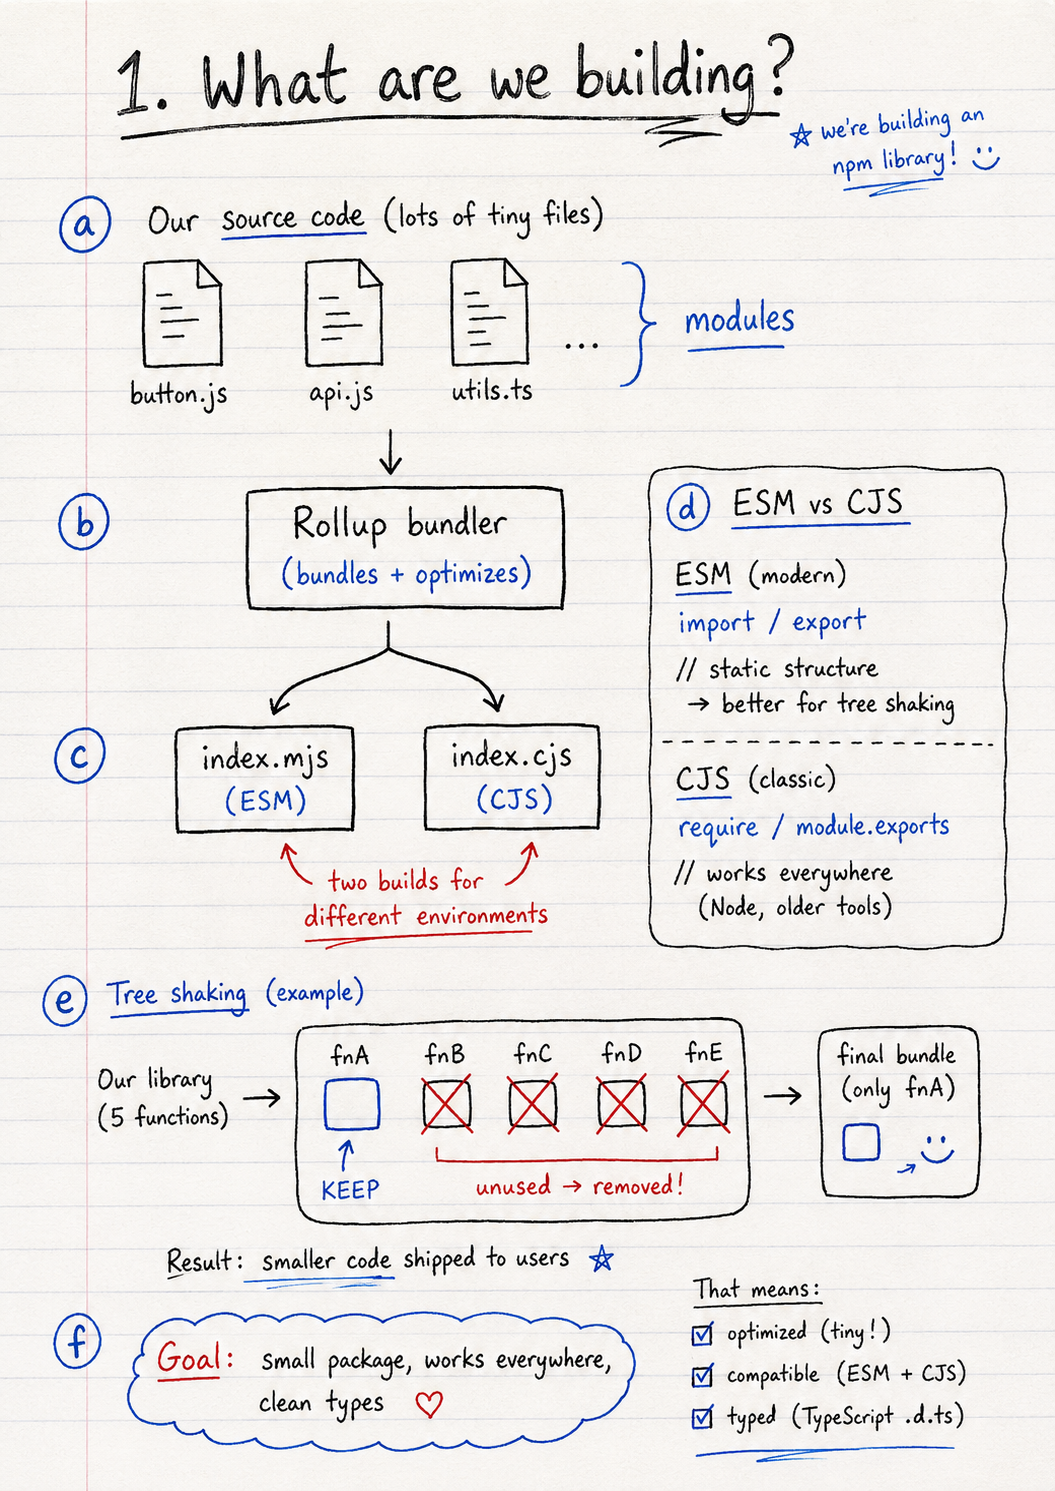 1. What are we building?
☆ we're building an
npm library! :)
a Our source code (lots of tiny files)
button.js api.js utils.ts ... modules
b Rollup bundler
(bundles + optimizes)
c index.mjs
(ESM)
index.cjs
(CJS)
two builds for
different environments
d ESM vs CJS
ESM (modern)
import / export
// static structure
→ better for tree shaking
CJS (classic)
require / module.exports
// works everywhere
(Node, older tools)
e Tree shaking (example)
Our library
(5 functions)
fnA fnB fnC fnD fnE
KEEP
unused → removed!
final bundle
(only fnA)
Result: smaller code shipped to users ☆
f Goal: small package, works everywhere,
clean types ♡
That means:
☑ optimized (tiny!)
☑ compatible (ESM + CJS)
☑ typed (TypeScript .d.ts)